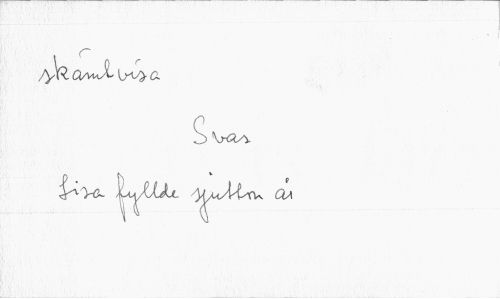 skämtvisa
Svas
Lisa fyllde sjutton år